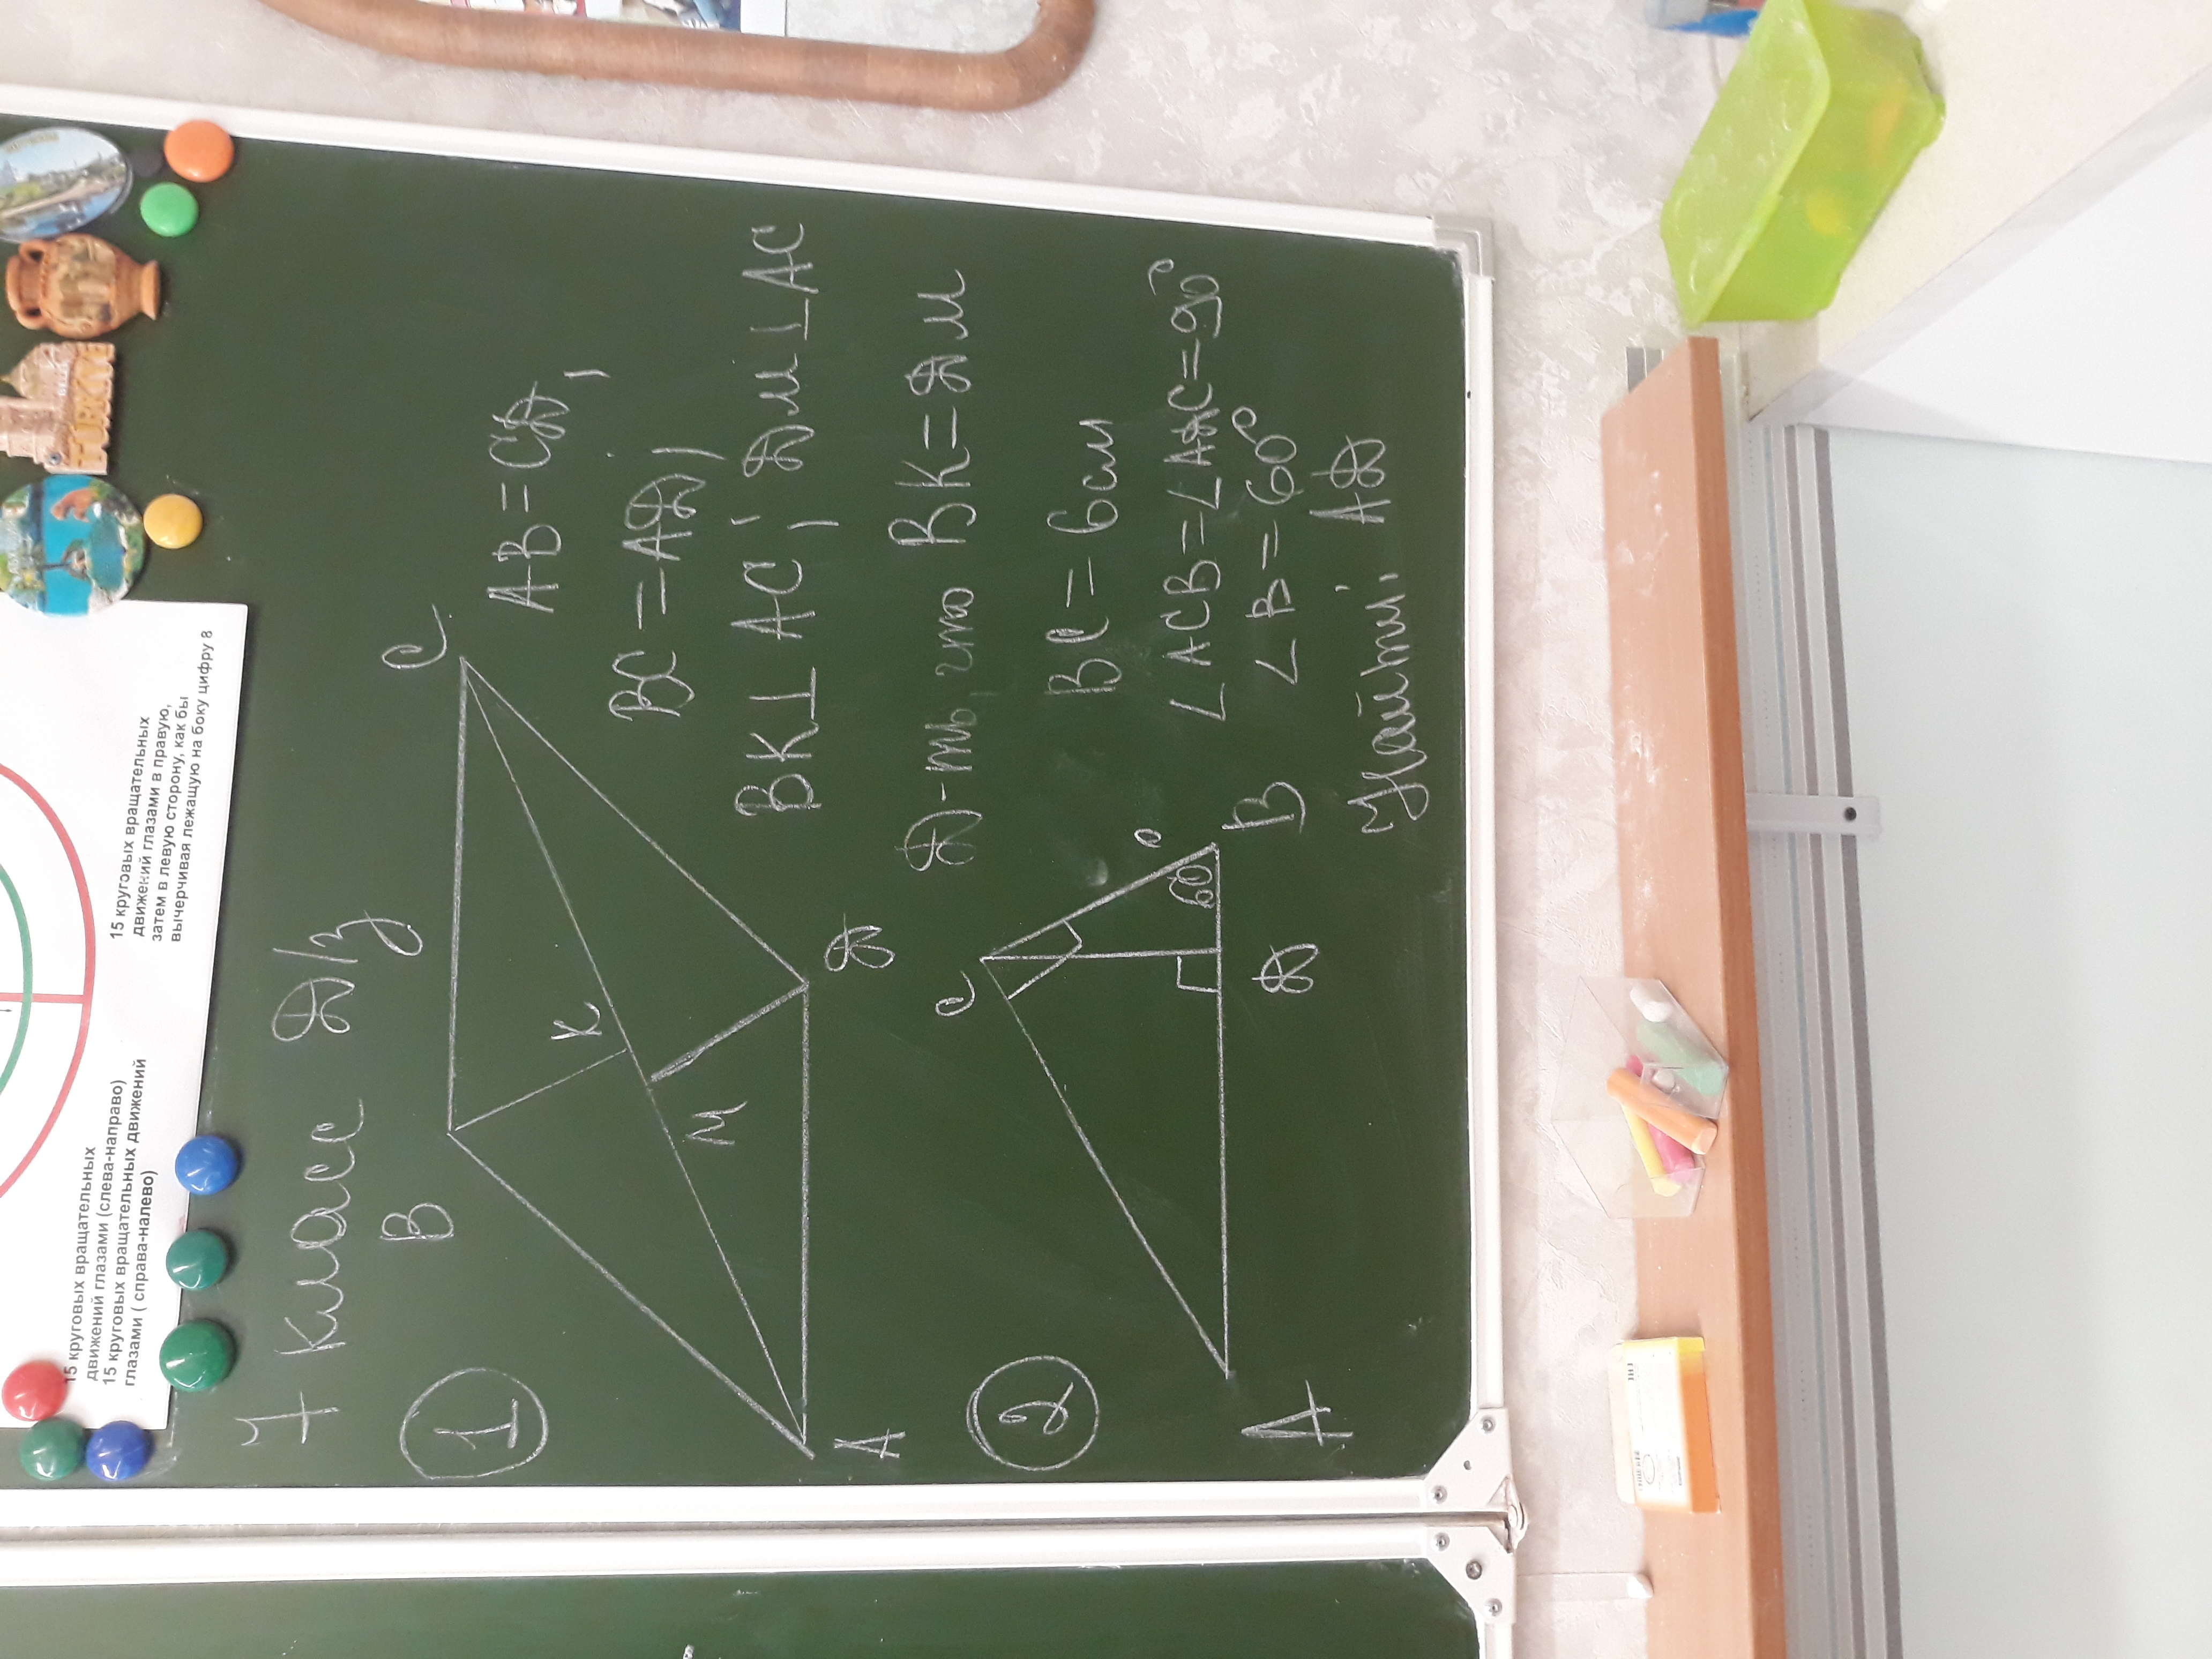 15 круговых вращательных
движений глазами (слева-направо)
15 круговых вращательных движений
глазами ( справа-налево)
15 круговых вращательных
движений глазами в правую,
затем в левую сторону, как бы
вычерчивая лежащую на боку цифру 8
TURKIYE
7 класс Д/з
1
B C
K
M
A D
AB = CD,
BC = AD,
BK ⊥ AC, DM ⊥ AC
Д-ть что BK = DM
2
C
60°
A D B
BC = 6 см
∠ACB = ∠ADC = 90°
∠B = 60°
Найти: AD